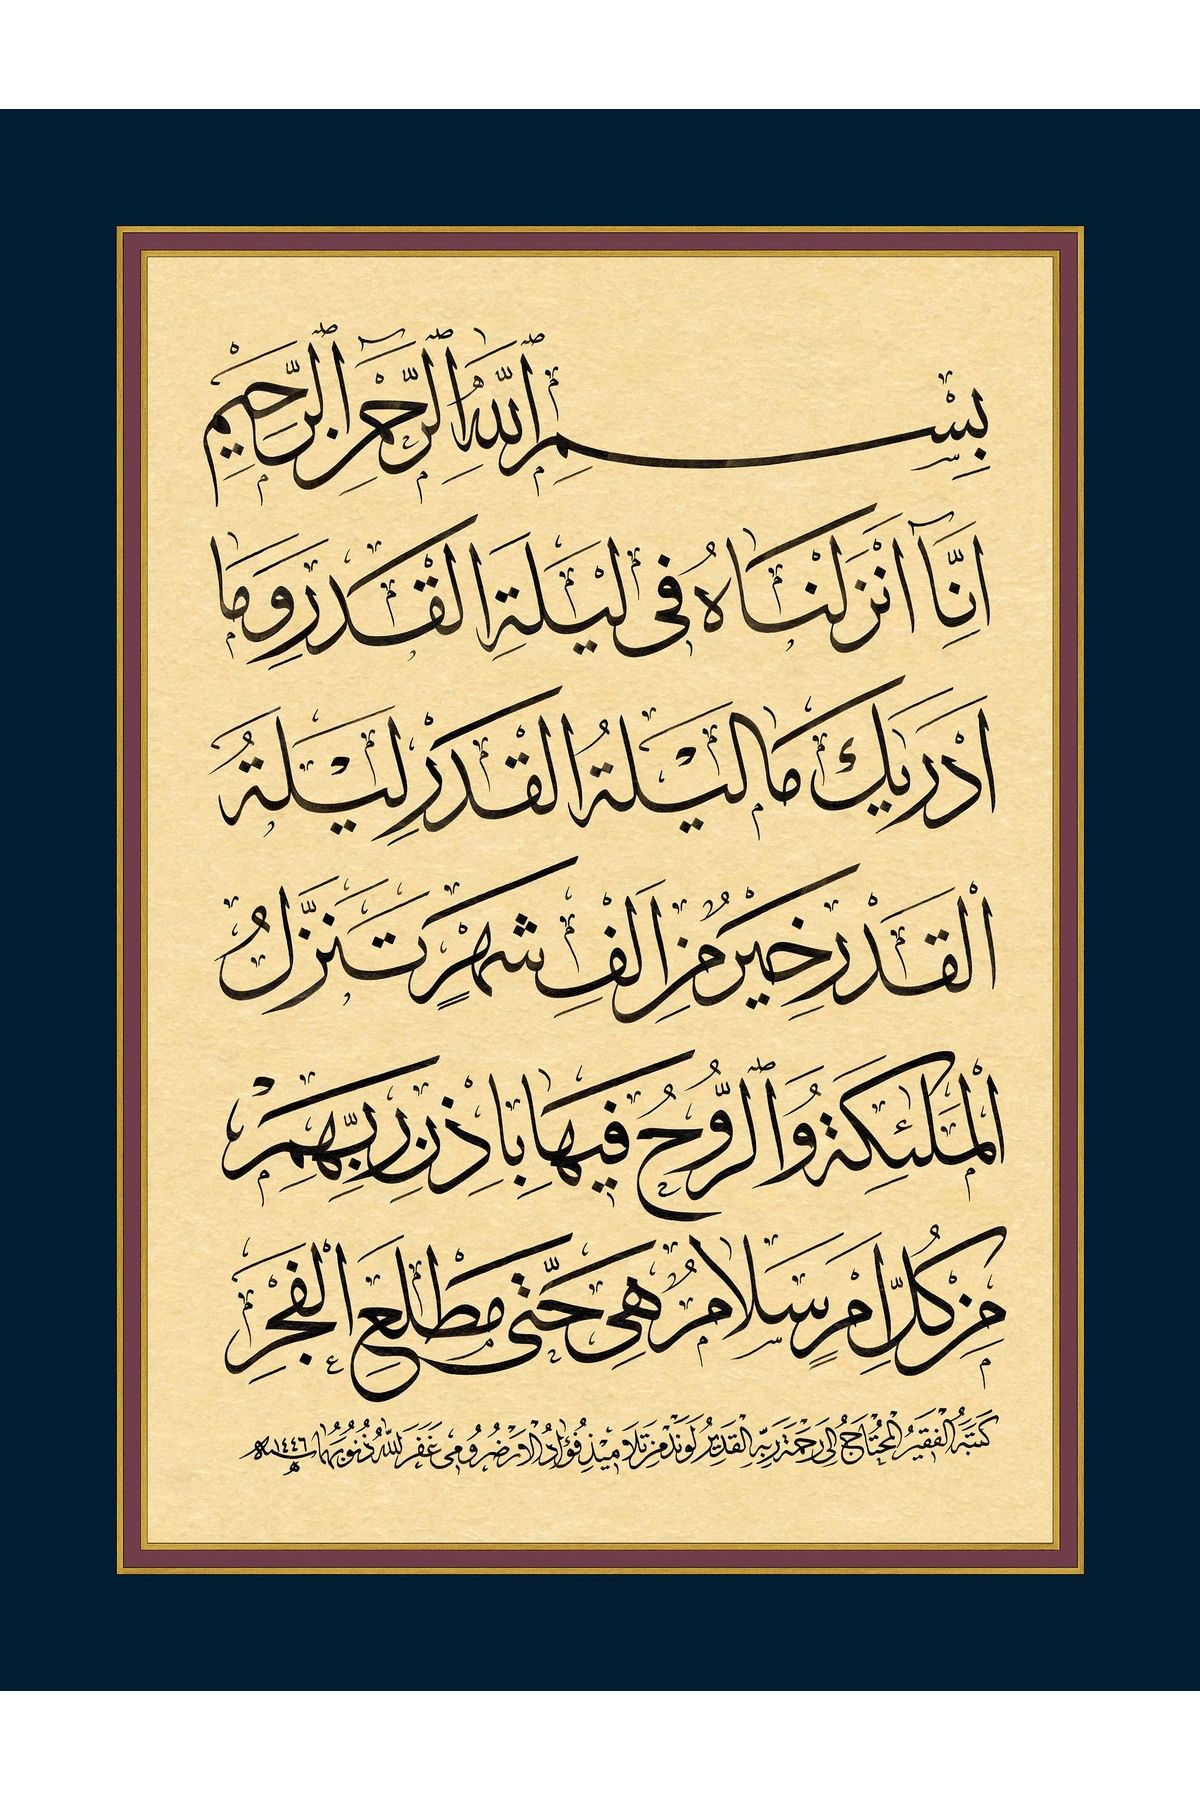 بِسْمِ ٱللّٰهِ ٱلرَّحْمٰنِ ٱلرَّحِيمِ
اِنَّٓا اَنْزَلْنَاهُ فٖى لَيْلَةِ الْقَدْرِ وَمَا
اَدْرٰيكَ مَا لَيْلَةُ الْقَدْرِ لَيْلَةُ
الْقَدْرِ خَيْرٌ مِنْ اَلْفِ شَهْرٍ تَنَزَّلُ
الْمَلٰئِكَةُ وَٱلرُّوحُ فٖيهَا بِاِذْنِ رَبِّهِمْ
مِنْ كُلِّ اَمْرٍ سَلَامٌ هِىَ حَتّٰى مَطْلَعِ الْفَجْرِ
كَتَبَهُ الْفَقِيرُ الْمُحْتَاجُ اِلَى رَحْمَةِ رَبِّهِ الْقَدِيرِ لَوَنْدْ مِنْ تَلَامِيذِ فُؤَادُ الْاَرْضُرُومِى غَفَرَ اللّٰهُ ذُنُوبَهُمَا ١٤٤٦ه